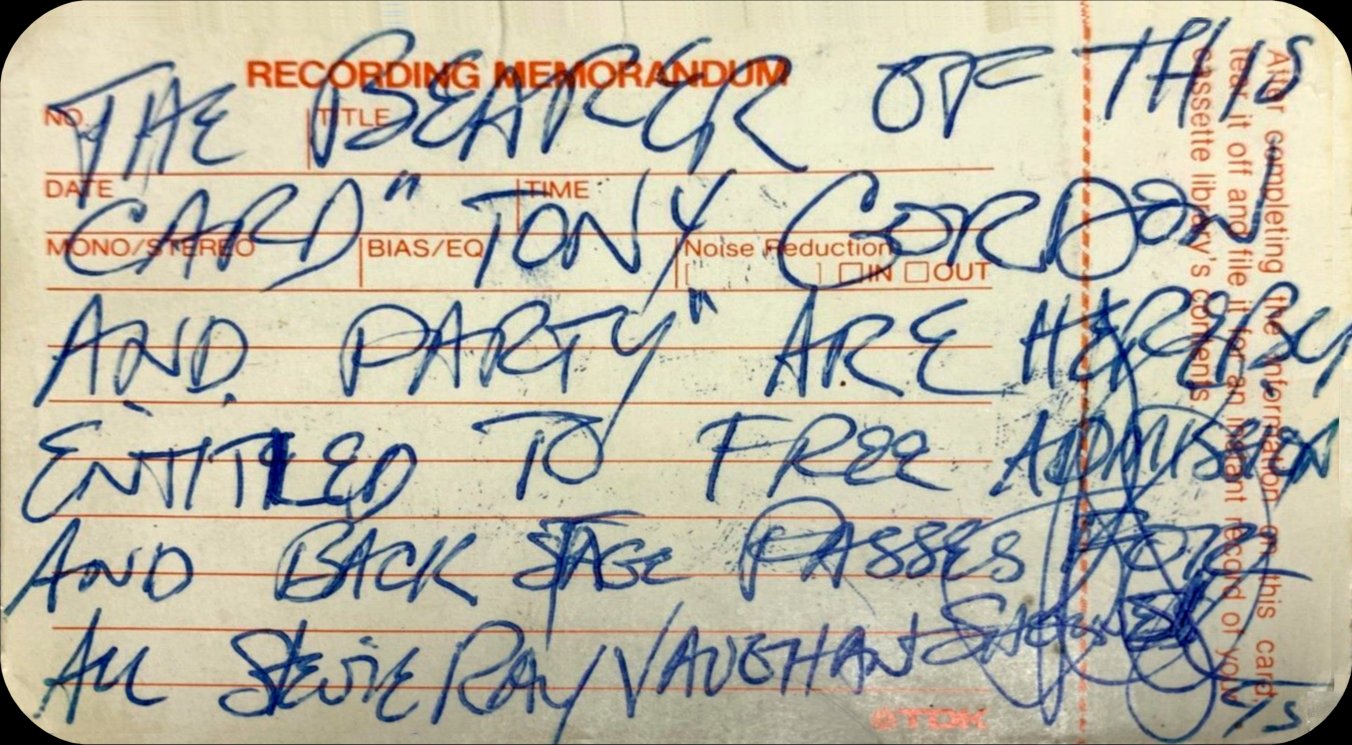 RECORDING MEMORANDUM
NO.
TITLE
DATE
TIME
MONO/STEREO
BIAS/EQ
Noise Reduction
IN OUT
THE BEARER OF THIS
"CARD" TONY GORDON
AND PARTY" ARE HEREBY
ENTITLED TO FREE ADMISSION
AND BACK STAGE PASSES FOR
ALL STEVIE RAY VAUGHAN
TDK
After completing the information on this card
tear it off and file it for an instant record of your
cassette library's contents